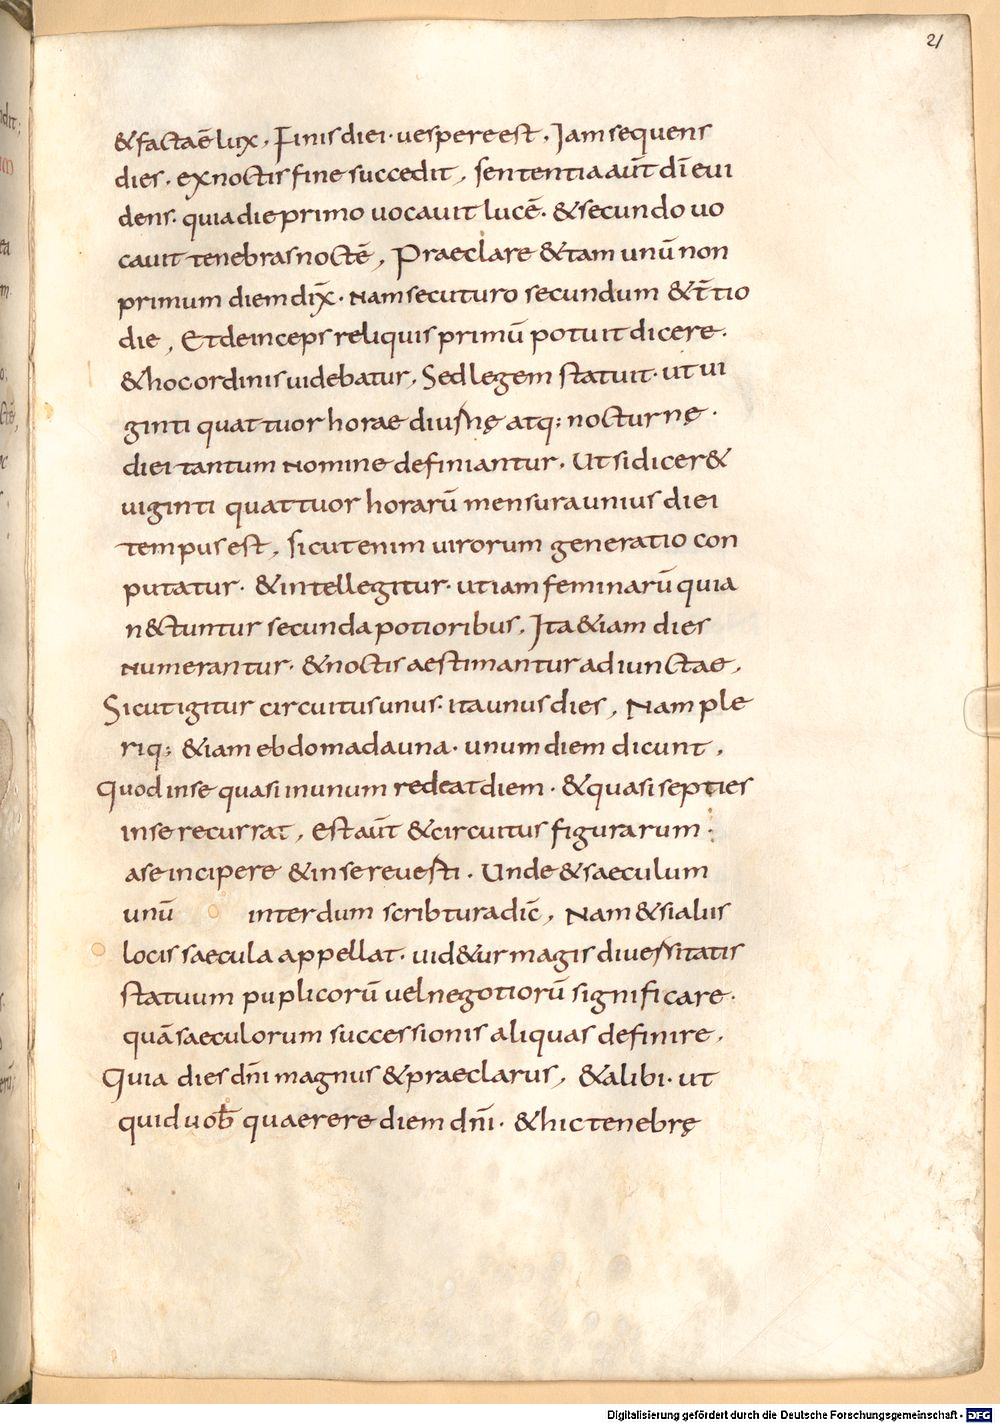 21
&factaē lux, Finis diei· uespere est, Iam sequens
dies· ex noctis fine succedit, sententia aūt dī eui
dens· quia die primo uocauit lucē· & secundo uo
cauit tenebras noctē, Praeclare & tam unū non
primum diem dix̄· Nam secuturo secundum & t̄tio
die, Et deinceps reliquis primū potuit dicere·
& hoc ordinis uidebatur, Sed legem statuit· ut ui
ginti quattuor horae diurnę atq; nocturnę·
diei tantum nomine definiantur, Ut si dicer&
uiginti quattuor horarū mensura unius diei
tempus est, sicut enim uirorum generatio con
putatur· & intellegitur· ut iam feminarū quia
n&ctuntur secunda potioribus, Ita &iam dies
numerantur· & noctis aestimantur adiunctae,
Sicut igitur circuitus unus· ita unus dies, Nam ple
riq; &iam ebdomada una· unum diem dicunt,
Quod in se quasi in unum redeat diem· & quasi septies
in se recurrat, est aūt & circuitus figurarum·
a se incipere & in se reuesti· Unde & saeculum
unū interdum scribtura dic̄, Nam & si aliis
locis saecula appellat· uid&ur magis diuersitatis
statuum puplicorū uel negotiorū significare·
quā saeculorum successionis aliquas definire,
Quia dies dn̄i magnus & praeclarus, & alibi· ut
quid uob̄ quaerere diem dn̄i· & hic tenebrę
Digitalisierung gefördert durch die Deutsche Forschungsgemeinschaft - DFG